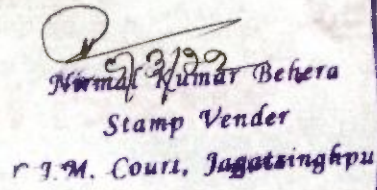 Nirmal Kumar Behera
Stamp Vender
r J.M. Court, Jagatsinghpu